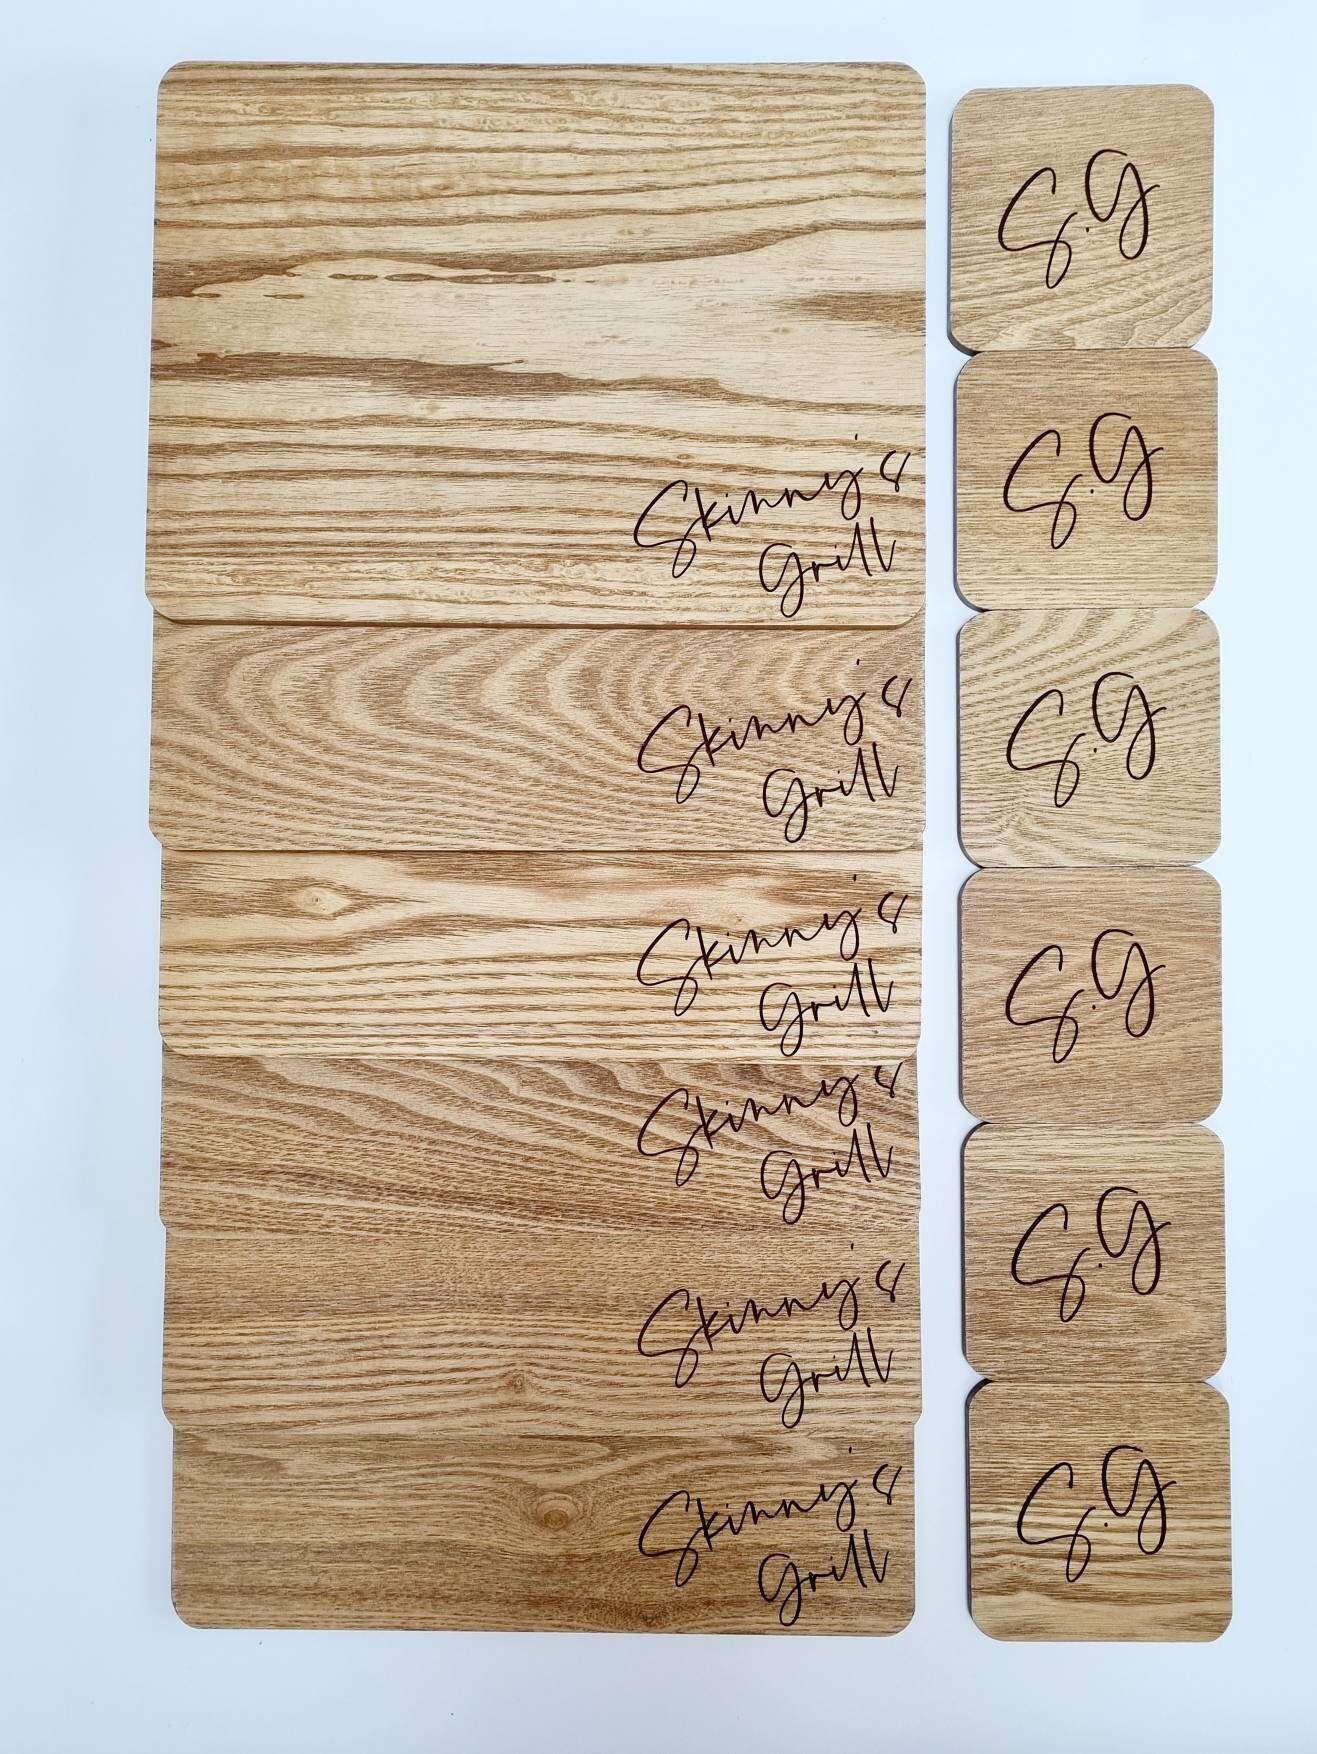 Skinny's
Grill
Skinny's
Grill
Skinny's
Grill
Skinny's
Grill
Skinny's
Grill
Skinny's
Grill
S.G
S.G
S.G
S.G
S.G
S.G